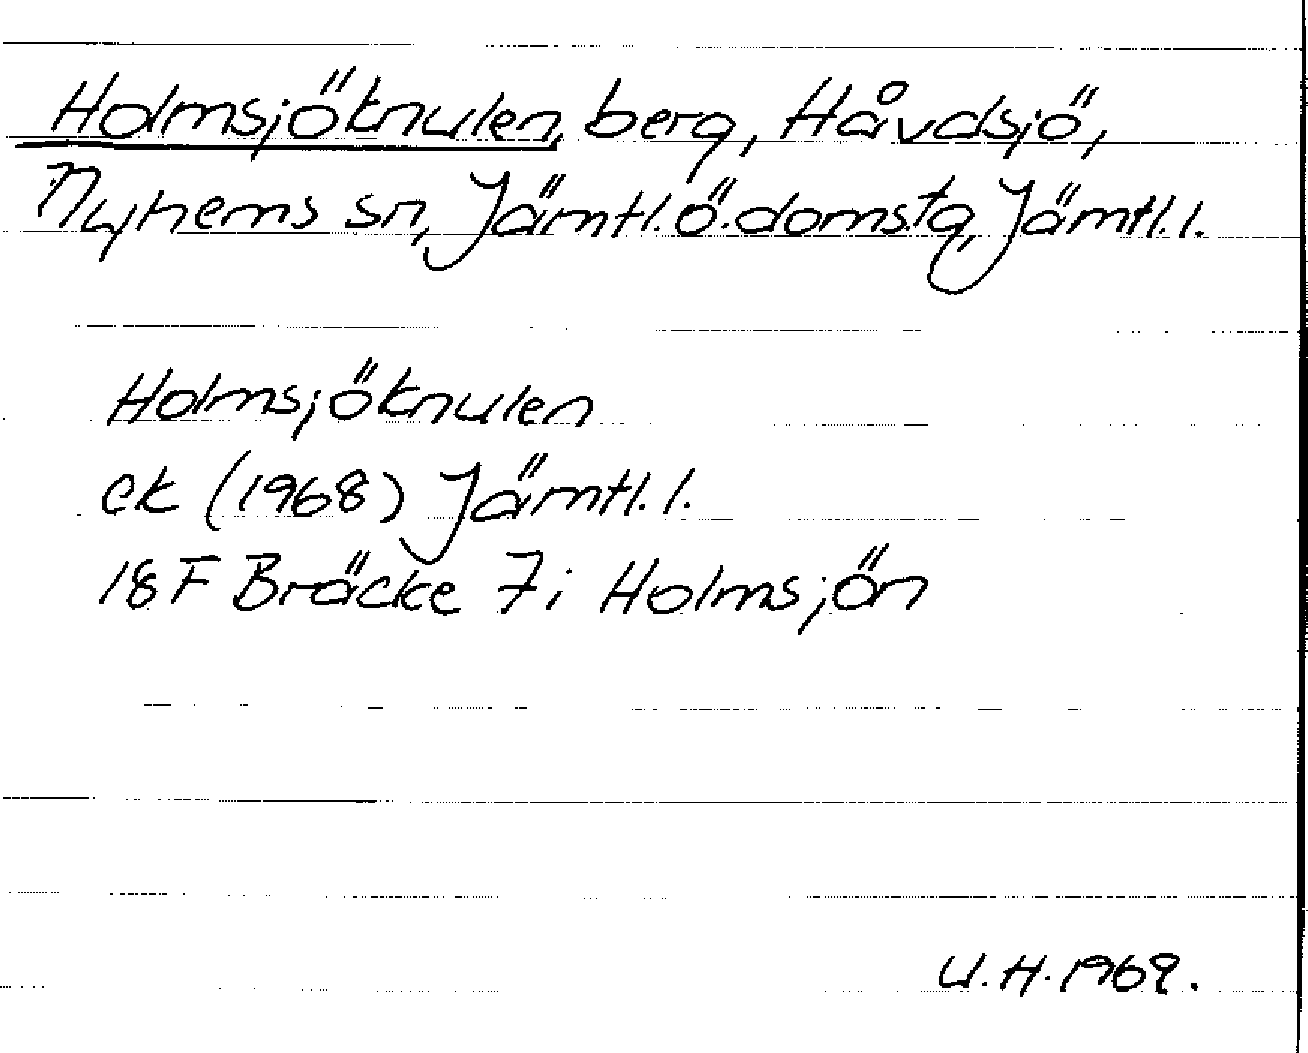 Holmsjöknulen, berg, Håvdsjö,
Nyhems sn, Jämtl. ö. domstg, Jämtl. l.
Holmsjöknulen
ek (1968) Jämtl. l.
18 F Bräcke 7i Holmsjön
U.H. 1969.